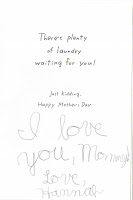 There's plenty
of laundry
waiting for you!
Just Kidding.
Happy Mothers Day
I love
you, Mommy!
Love,
Hannah